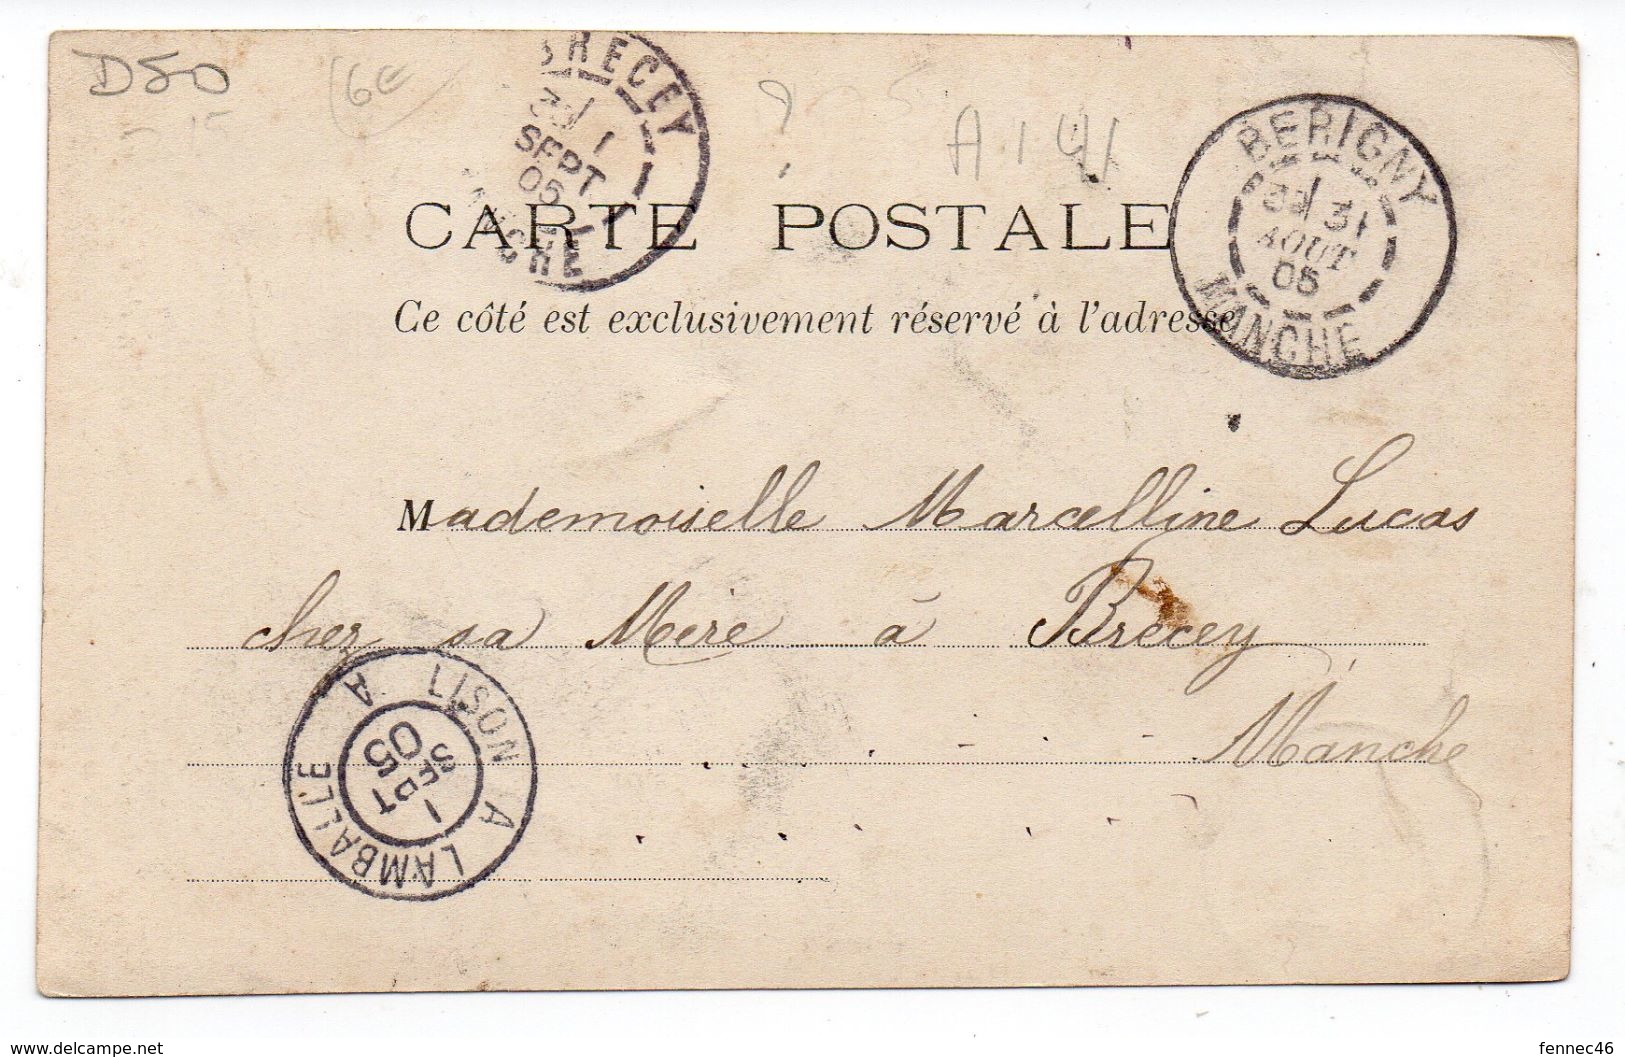 D50
6e
BRECEY
1
SEPT
05
MANCHE
?
A141
BERIGNY
31
AOUT
05
MANCHE
CARTE POSTALE
Ce côté est exclusivement réservé à l'adresse
Mademoiselle Marcelline Lucas
chez sa Mère à Brécey
Manche
LISON A LAMBALLE A
1
SEPT
05
www.delcampe.net
fennec46